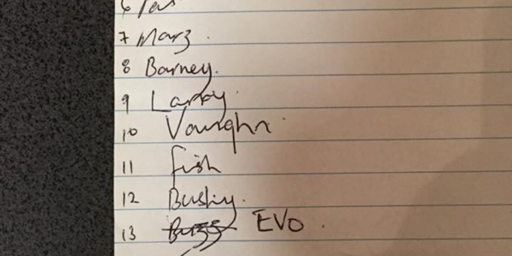 6
7 Marz.
8 Barney.
9 Larry.
10 Vaughn.
11 fish
12 Bushy.
13 Buzz EVO.